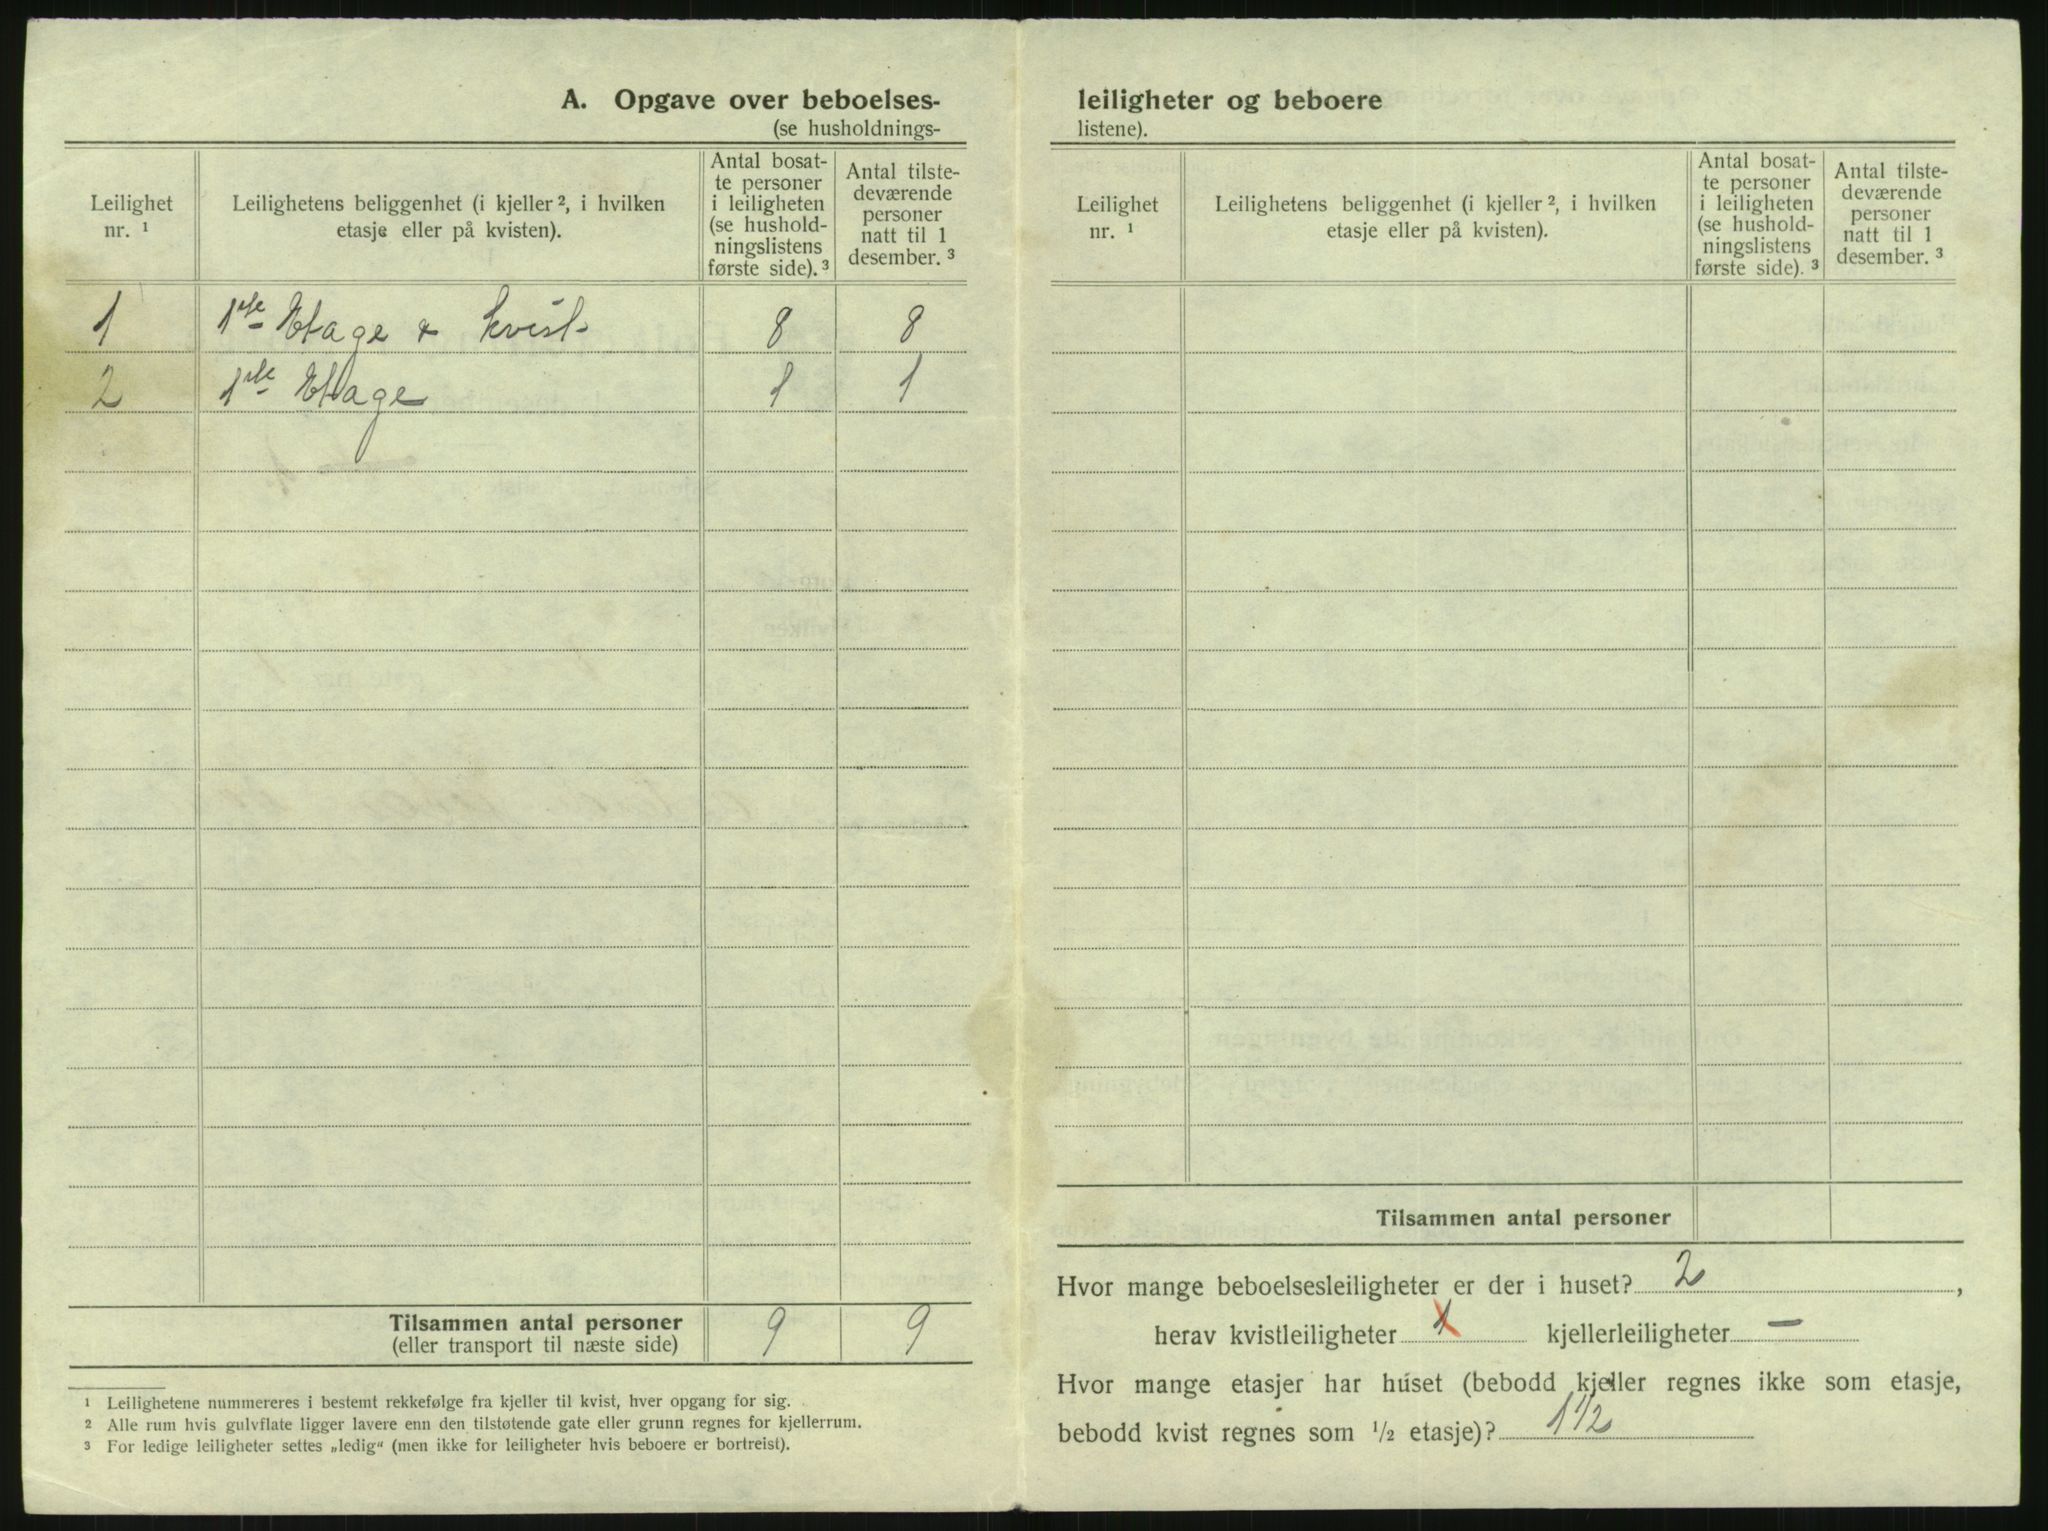 A. Opgave over beboelses-
(se husholdnings-
Leilighet
nr. ¹
Leilighetens beliggenhet (i kjeller ², i hvilken
etasje eller på kvisten).
Antal bosat-
te personer
i leiligheten
(se hushold-
ningslistens
første side). ³
Antal tilste-
deværende
personer
natt til 1
desember. ³
1 1ste Etage & kvist 8 8
2 1ste Etage 1 1
Tilsammen antal personer 9 9
(eller transport til næste side)
¹ Leilighetene nummereres i bestemt rekkefølge fra kjeller til kvist, hver opgang for sig.
² Alle rum hvis gulvflate ligger lavere enn den tilstøtende gate eller grunn regnes for kjellerrum.
³ For ledige leiligheter settes „ledig“ (men ikke for leiligheter hvis beboere er bortreist).
leiligheter og beboere
listene).
Leilighet
nr. ¹
Leilighetens beliggenhet (i kjeller ², i hvilken
etasje eller på kvisten).
Antal bosat-
te personer
i leiligheten
(se hushold-
ningslistens
første side). ³
Antal tilste-
deværende
personer
natt til 1
desember. ³
Tilsammen antal personer
Hvor mange beboelsesleiligheter er der i huset? 2 ,
herav kvistleiligheter 1 kjellerleiligheter —
Hvor mange etasjer har huset (bebodd kjeller regnes ikke som etasje,
bebodd kvist regnes som ½ etasje)? 1½